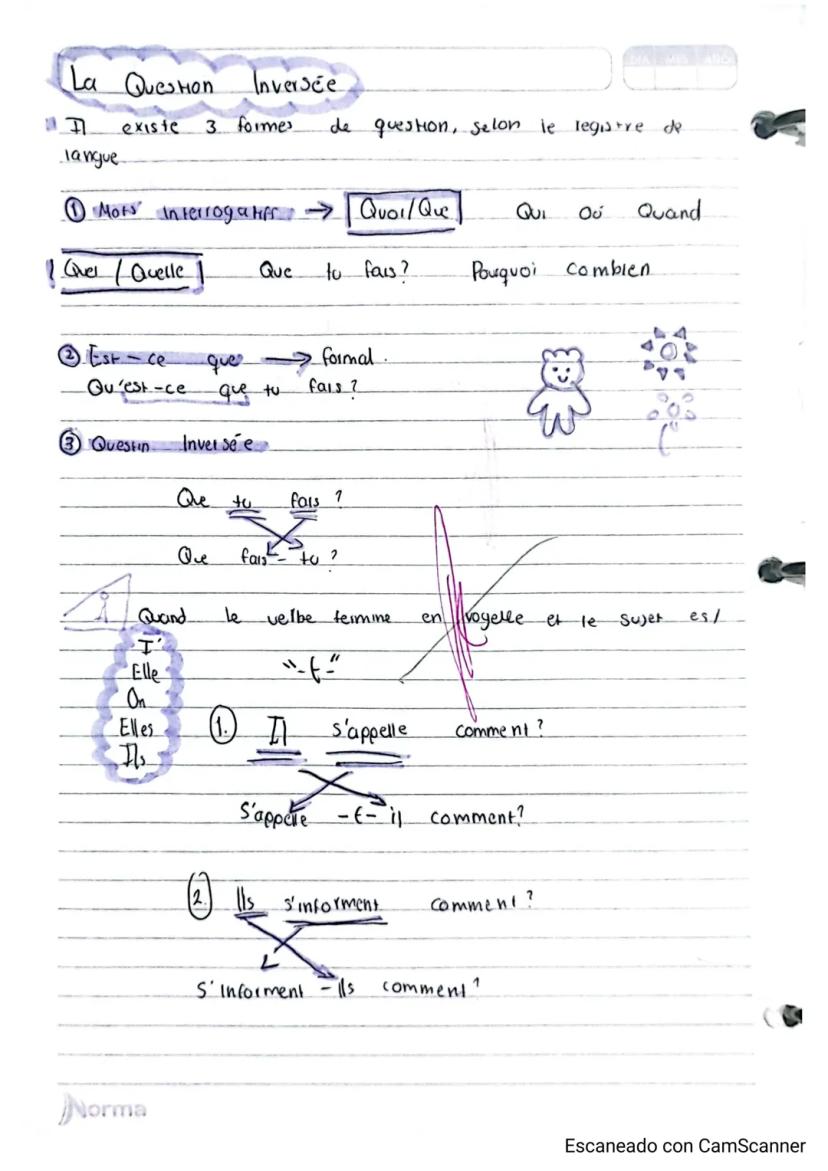 La Question Inversée
DIA MES AÑO
Il existe 3 formes de question, selon le registre de
langue
① Mots interrogatifs → Quoi/Que Qui Où Quand
Quel / Quelle Que tu fais? Pourquoi combien
② Est-ce que → formal.
Qu'est-ce que tu fais?
③ Questin Inversée
Que tu fais ?
Que fais - tu ?
Quand le verbe termine en voyelle et le sujet es/
I'
Elle
"-t-"
On
Elles
Ils
1. Il s'appelle comment?
S'appelle -t- il comment?
2. Ils s'informent comment?
S'informent - Ils comment?
Norma
Escaneado con CamScanner